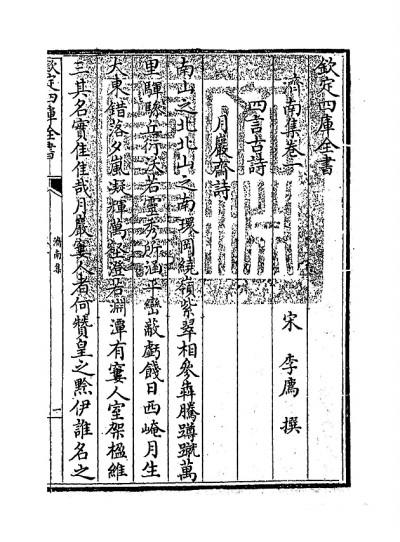 欽定四庫全書
濟南集卷一
宋 李廌 撰
四言古詩
月巖齋詩
南山之北北山之南環岡繞嶺紫翠相參犇騰蹲蹴萬
里騨驂丘行淡若靈秀所涵平巒敵虧餞日西崦月生
大東錯落夕嵐凝輝萬壑澄若淵潭有窶人室架楹維
三其名實隹隹哉月巖窶人者何贊皇之黥伊誰名之
欽定四庫全書
濟南集
一